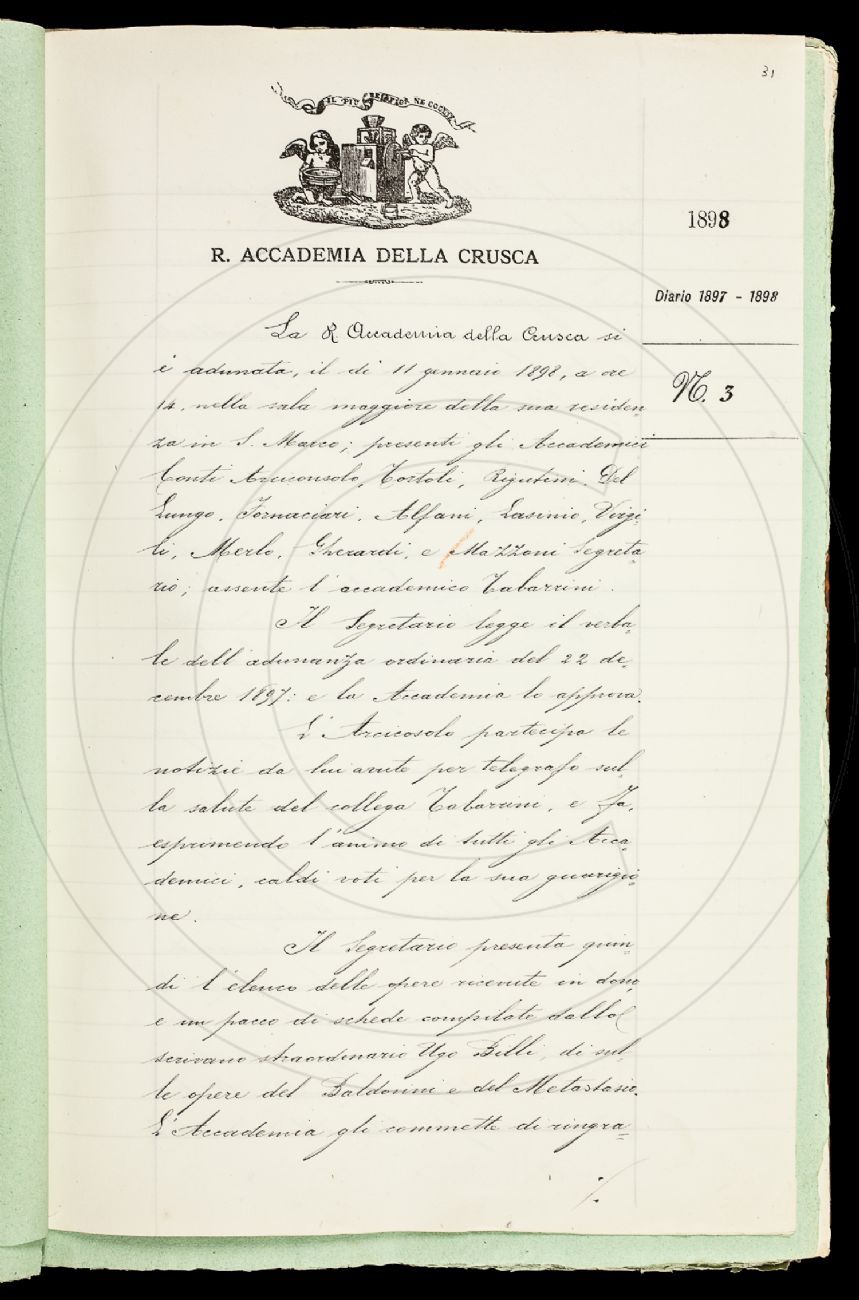 31
IL PIÙ BEL FIOR NE COGLIE
R. ACCADEMIA DELLA CRUSCA
1898
Diario 1897 - 1898
N. 3
La R Accademia della Crusca si
è adunata, il dì 11 gennaio 1898, a ore
14, nella sala maggiore della sua residen=
za in S. Marco; presenti gli Accademici
Conti Arciconsolo, Tortoli, Rigutini, Del
Lungo, Fornaciari, Alfani, Lasinio, Virgi=
li, Merlo, Gherardi, e Mazzoni Segreta=
rio; assente l'accademico Tabarrini.
Il Segretario legge il verba=
le dell'adunanza ordinaria del 22 de=
cembre 1897: e la Accademia lo approva.
L'Arcicosolo partecipa le
notizie da lui avute per telegrafo sul=
la salute del collega Tabarrini, e fa,
esprimendo l'animo di tutti gli Acca=
demici, caldi voti per la sua guarigio=
ne.
Il Segretario presenta quin=
di l'elenco delle opere ricevute in dono,
e un pacco di schede compilate dallo
scrivano straordinario Ugo Billi, di sul=
le opere del Baldovini e del Metastasio.
L'Accademia gli commette di ringra=
./.